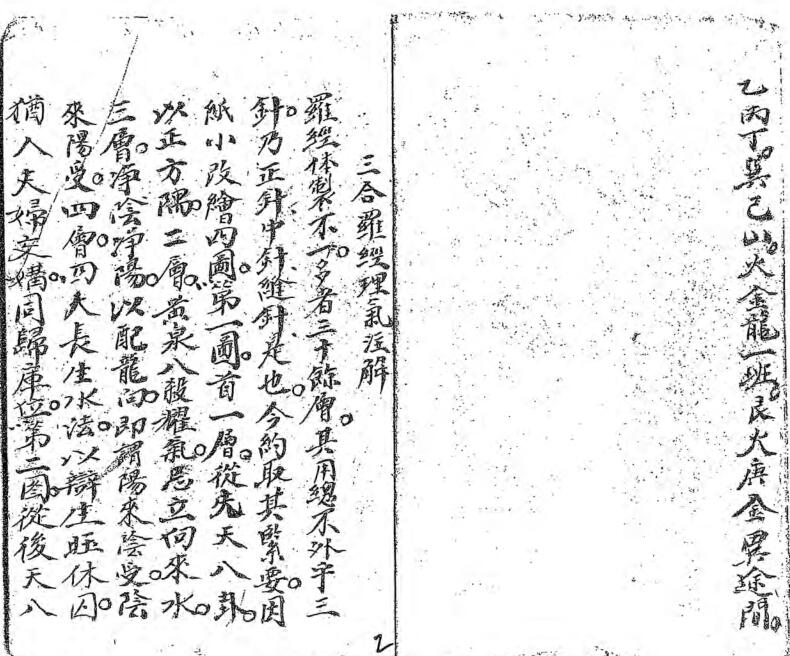 乙丙丁。巽己山。火金龍一班。艮火庚金異途間。
三合羅經理氣注解
羅經体製不一。多者三十餘層。其用總不外乎三
針。乃正針中針縫針是也。今約取其緊要。因
紙小改繪四圖。第一圖。首一層。從先天八卦。
以正方隅。二層。黃泉八殺耀氣。忌立向來水。
三層。净陰净陽。以配龍向。即謂陽來陰受。陰
來陽受。四層。四大長生水法。以辯生旺休囚。
猶入夫婦交媾。同歸庫位。第二圖。從後天八
2